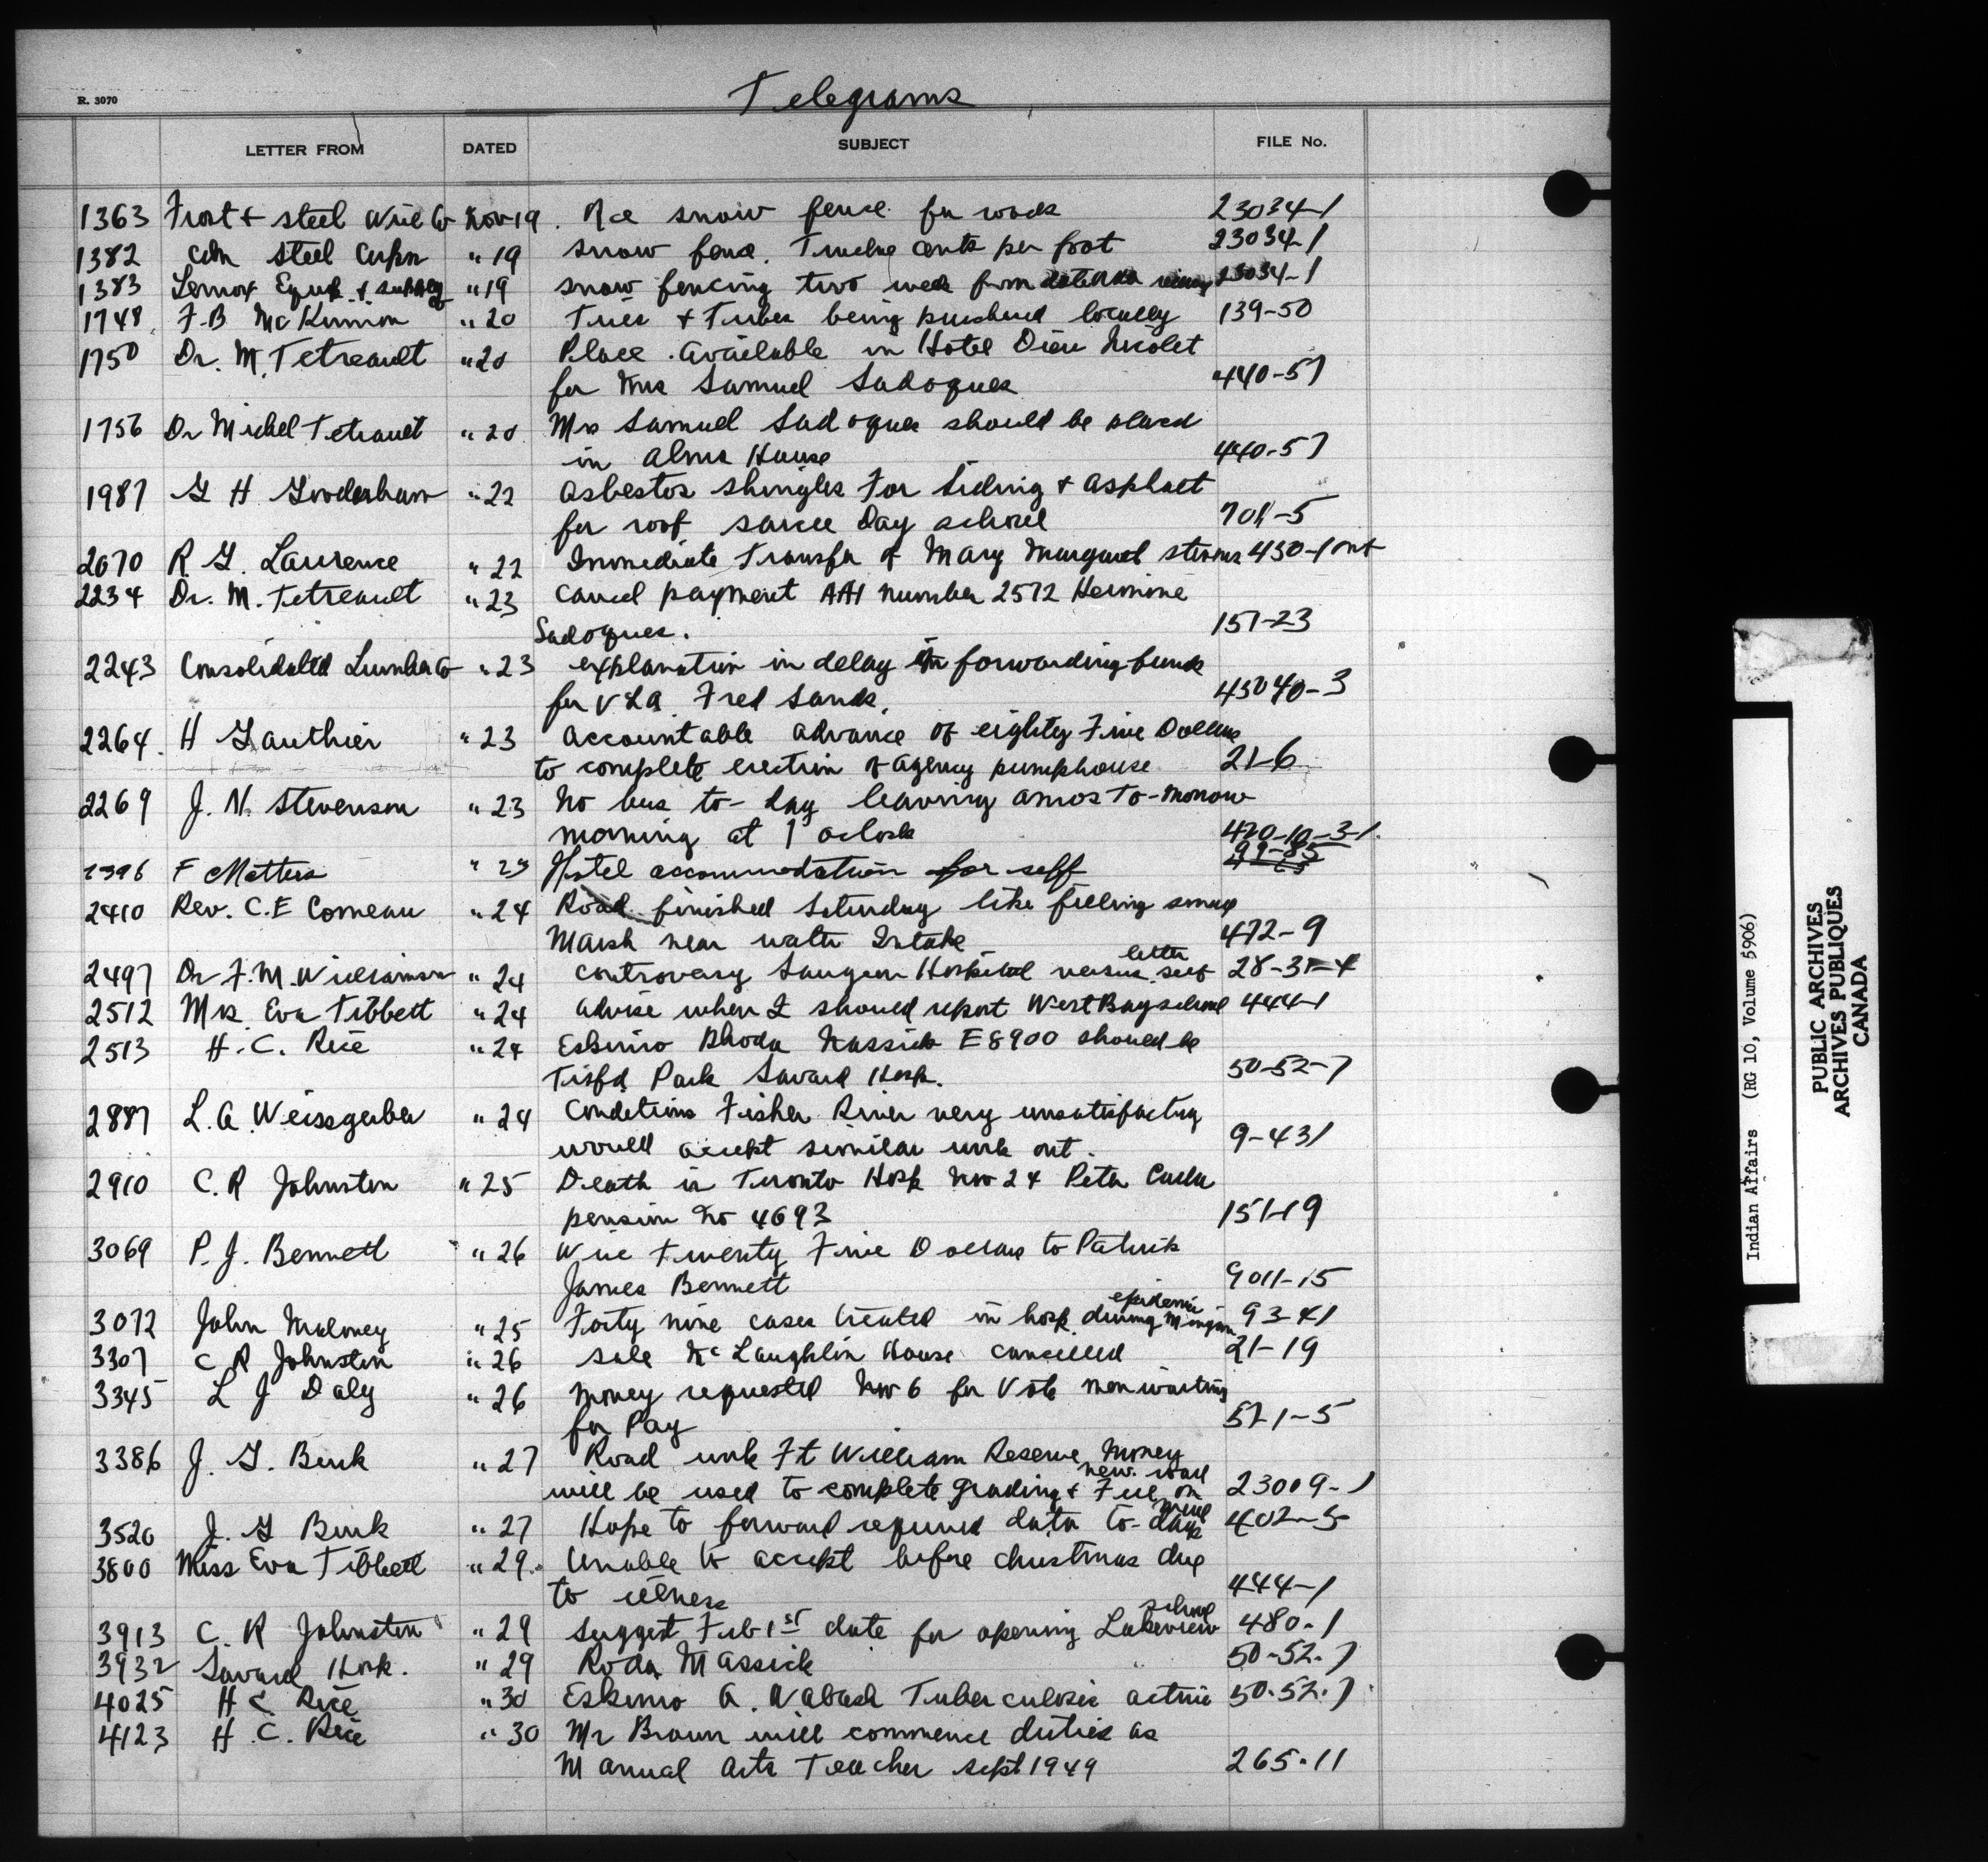 R. 3070
Telegrams
LETTER FROM DATED SUBJECT FILE No.
1363 Frost & steel Wire Co Nov 19. Rce snow fence for roads 23034-1
1382 Cdn Steel Corpn " 19 snow fence. Twelve cents per foot 23034-1
1383 Lennox Equip. & supply Co " 19 snow fencing two week from 23034-1
1748 F.B McKinnon " 20 Tires & Tubes being purchased locally 139-50
1750 Dr. M. Tetreault " 20 Place available in Hotel Dieu Nicolet
for Mrs Samuel Sadoques 440-57
1756 Dr Michel Tetreault " 20 Mrs Samuel Sadoques should be placed
in Alms House 440-57
1987 G H Gooderham " 22 Asbestos shingles For Siding & asphalt
for roof sarcee Day school 701-5
2070 R G. Lawrence " 22 Immediate Transfer of Mary Margaret 450-1 ont
2234 Dr. M. Tetreault " 23 Cancel payment AA1 number 2572 Hermine
Sadoques. 157-23
2243 Consolidated Lumber Co " 23 explanation in delay in forwarding funds
for V L A. Fred Sands. 45040-3
2264. H Gauthier " 23 accountable advance of eighty Five Dollars
to complete erection of agency pumphouse 21-6
2269 J. N. Stevenson " 23 No bus to-day leaving Amos To-morrow
morning at 1 oclock 470-10-3-1.
2396 F Matters " 23 Hotel accommodation for self
2410 Rev. C.E Comeau " 24 Road finished Saturday like filling small
Marsh near water Intake 472-9
letter
2497 Dr F. M. Williamson " 24 controversy Saugeen Hospital versus self 28-31-4
2512 Mrs. Eva Tibbett " 24 advise when I should report West Bay school 444-1
2513 H. C. Rice " 24 Eskimo Rhoda Massick E8900 should be
Trsfd Park Savard Hosp. 50-52-7
2887 L. A. Weissgerber " 24 Conditions Fisher River very unsatisfactory
would accept similar work ont. 9-431
2910 C. R Johnston " 25 Death in Toronto Hosp Nov 24 Peter
pension no 4693 151-19
3069 P. J. Bennett " 26 Wire Twenty Five Dollars to Patrick
James Bennett 9011-15
epidemic
3072 John Maloney " 25 Forty nine cases treated in hosp. during Mingan 93-41
3307 C R Johnston " 26 sale McLaughlin House cancelled 21-19
3345 L J Daly " 26 money requested Nov 6 for Vote men waiting
for Pay 571-5
3386 J. G. Burk " 27 Road work Ft William Reserve Money
new road
will be used to complete grading & Fill on 23009-1
mail
3520 J. G Burk " 27 Hope to forward required data to-day 402-5
3800 Miss Eva Tibbett " 29. Unable to accept before christmas due
to illness 444-1
school
3913 C. R Johnston " 29 suggest Feb 1st date for opening Lakeview 480-1
3932 Savard Hosp. " 29 Roda Massick 50-52-7
4025 H C. Rice " 30 Eskimo A. Nabash Tuberculosis active 50-52-7
4123 H. C. Rice " 30 Mr Brown will commence duties as
Manual Arts Teacher sept 1949 265-11
Indian Affairs (RG 10, Volume 5906)
PUBLIC ARCHIVES
ARCHIVES PUBLIQUES
CANADA